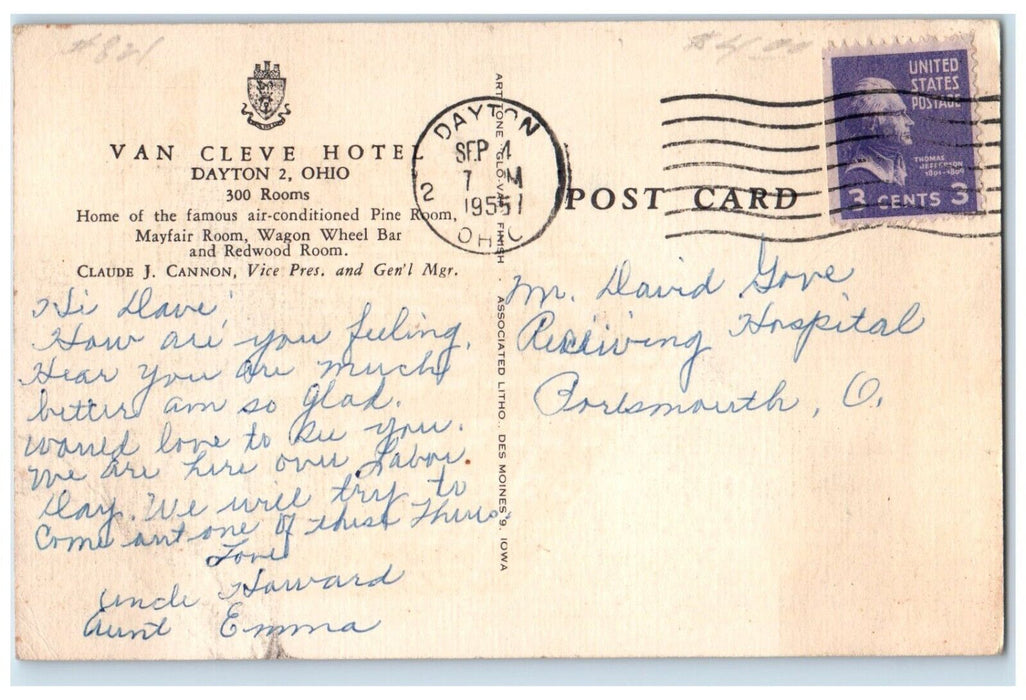 #821
$4.00
VAN CLEVE HOTEL
DAYTON 2, OHIO
300 Rooms
Home of the famous air-conditioned Pine Room,
Mayfair Room, Wagon Wheel Bar
and Redwood Room.
CLAUDE J. CANNON, Vice Pres. and Gen'l Mgr.
Hi Dave,
How are you feeling.
Hear you are much
better am so glad.
Would love to see you.
We are here over Labor
Day. We will try to
Come out one of these Thurs.
Love
Uncle Howard
Aunt Emma
ARTTONE "GLO-VAR" FINISH · ASSOCIATED LITHO., DES MOINES 9, IOWA
DAYTON
SEP 4
7 PM
1955
2
OHIO
POST CARD
UNITED
STATES
POSTAGE
THOMAS
JEFFERSON
1801-1809
3 CENTS 3
Mr. David Gove
Receiving Hospital
Portsmouth, O.